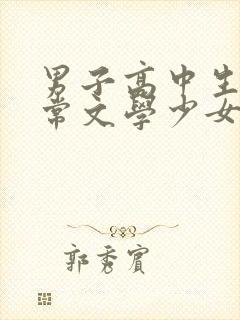 男子高中生
常文學少女
郭秀賓